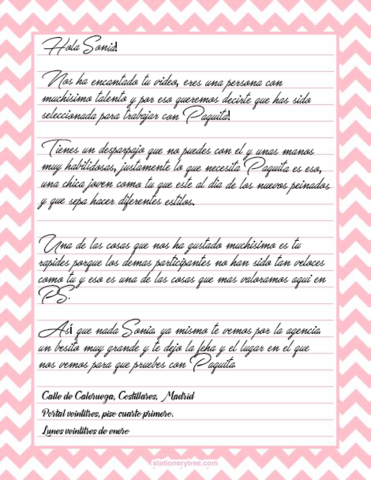 Hola Sonia!
Nos ha encantado tu video, eres una persona con
muchisimo talento y por eso queremos decirle que has sido
seleccionada para trabajar con Paquita!
Tienes un desparpajo que no puedes con el y unas manos
muy habilidosas, justamente lo que necesita Paquita es eso,
una chica joven como tu que este al dia de los nuevos peinados
y que sepa hacer diferentes estilos.
Una de las cosas que nos ha gustado muchisimo es tu
rapides porque los demas participantes no han sido tan veloces
como tu y eso es una de las cosas que mas valoramos aqui en
PS.
Así que nada Sonia ya mismo te vemos por la agencia
un besito muy grande y te dejo la feha y el lugar en el que
nos vemos para que pruebes con Paquita
Calle de Caleruega, Costillares, Madrid
Portal veintitres, piso cuarto primero.
Lunes veintitres de enero
stationerytree.com